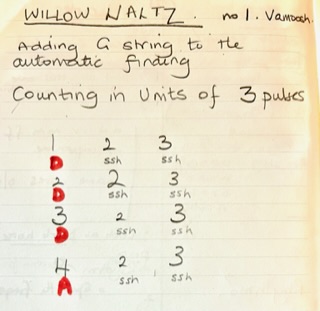 WILLOW WALTZ. no 1. Vamoosh.
Adding G string to the
automatic finding
Counting in Units of 3 pulses
1 2 3
D ssh ssh
2 2 3
D ssh ssh
3 2 3
D ssh ssh
4 2 3
A ssh ssh